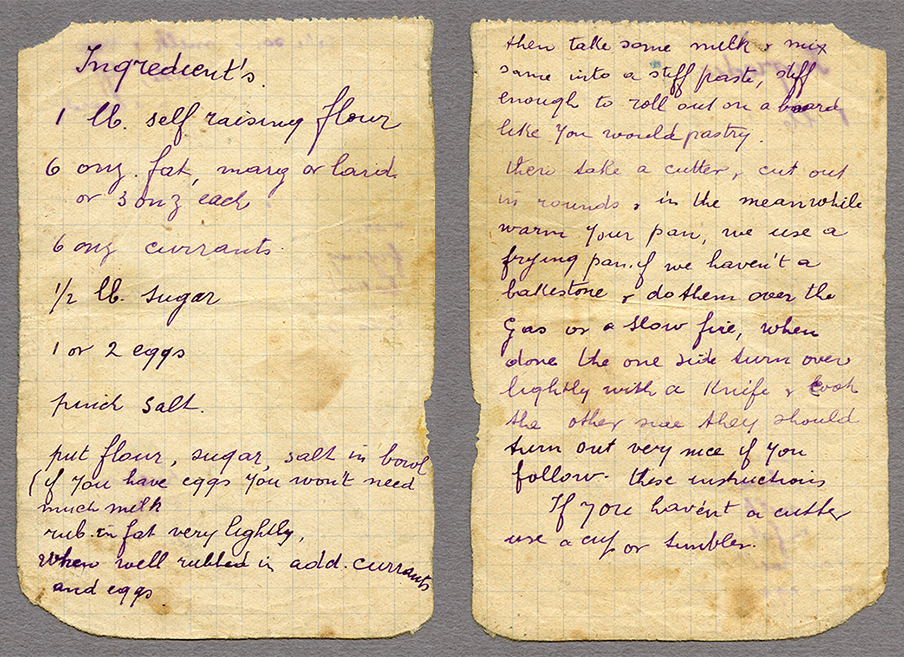 Ingredient's
1 lb. self raising flour
6 onz. fat, marg or lard
or 3 onz each
6 onz currants.
1/2 lb. sugar
1 or 2 eggs
pinch salt.
put flour, sugar, salt in bowl
(if you have eggs you won't need
much milk
rub in fat very lightly,
when well rubbed in add. currants
and eggs
then take some milk & mix
same into a stiff paste, stiff
enough to roll out on a board
like you would pastry.
then take a cutter & cut out
in rounds & in the meanwhile
warm your pan, we use a
frying pan. if we haven't a
bakestone & do them over the
Gas or a slow fire, when
done the one side turn over
lightly with a knife & cook
the other side they should
turn out very nice if you
follow. these instructions
If you haven't a cutter
use a cup or tumbler.